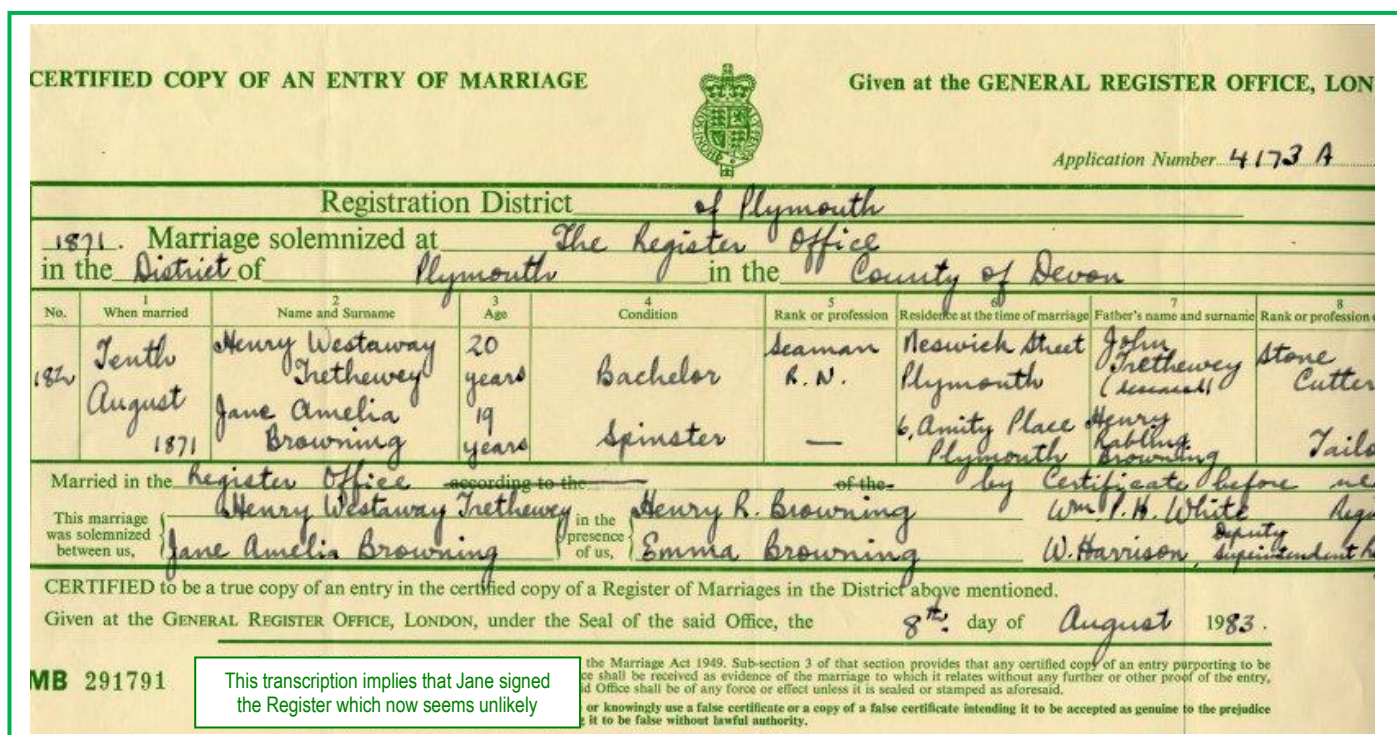 CERTIFIED COPY OF AN ENTRY OF MARRIAGE
Given at the GENERAL REGISTER OFFICE, LON
Application Number 4173 A
Registration District of Plymouth
1871. Marriage solemnized at The Register Office
in the District of Plymouth in the County of Devon
No. 1 When married 2 Name and Surname 3 Age 4 Condition 5 Rank or profession 6 Residence at the time of marriage 7 Father's name and surname 8 Rank or profession
Tenth Henry Westaway 20 Seaman Neswick Street John Stone
182 Trethewey years Bachelor R.N. Plymouth Trethewey Cutter
August (deceased)
Jane Amelia 19 6, Amity Place Henry
1871 Browning years Spinster — Plymouth Rabling Browning Tailo
Married in the Register Office according to the of the by Certificate before me
This marriage was solemnized between us, Henry Westaway Trethewey in the presence of us, Henry R. Browning Wm. P. H. White Regi
Jane Amelia Browning Emma Browning W. Harrison, Deputy Superintendent R
CERTIFIED to be a true copy of an entry in the certified copy of a Register of Marriages in the District above mentioned.
Given at the GENERAL REGISTER OFFICE, LONDON, under the Seal of the said Office, the 8th. day of August 1983.
MB 291791
This transcription implies that Jane signed
the Register which now seems unlikely
the Marriage Act 1949. Sub-section 3 of that section provides that any certified copy of an entry purporting to be
ce shall be received as evidence of the marriage to which it relates without any further or other proof of the entry,
id Office shall be of any force or effect unless it is sealed or stamped as aforesaid.
or knowingly use a false certificate or a copy of a false certificate intending it to be accepted as genuine to the prejudice
it to be false without lawful authority.